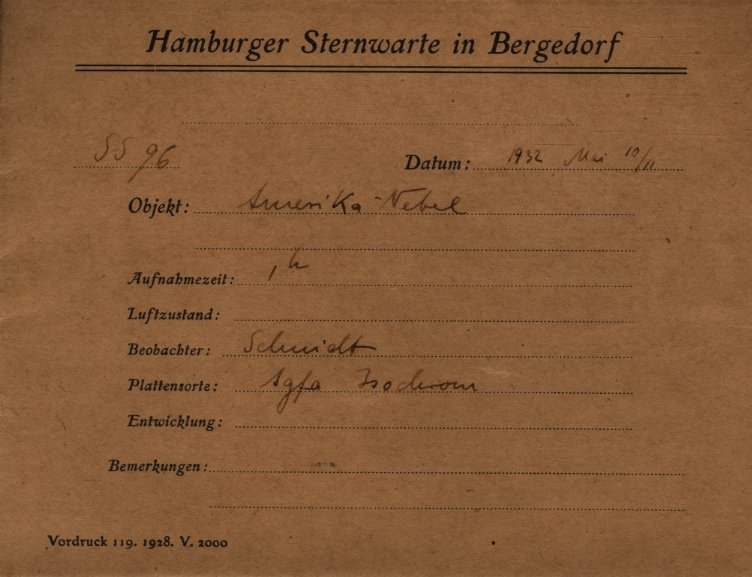 Hamburger Sternwarte in Bergedorf
SS 96 Datum: 1932 Mai 10/11
Objekt: Amerika-Nebel
Aufnahmezeit: 1h
Luftzustand:
Beobachter: Schmidt
Plattensorte: Agfa Isochrom
Entwicklung:
Bemerkungen:
Vordruck 119. 1928. V. 2000